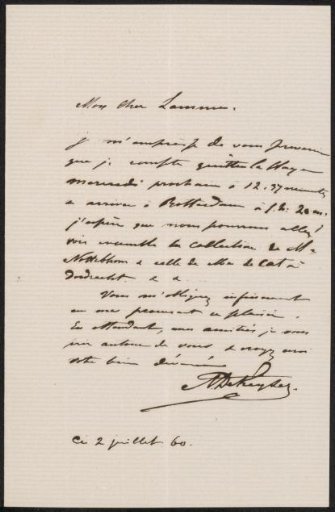 Mon cher Lamme.
je m'empresse de vous prévenir
que je compte quitter la Haye
mercredi prochain à 12.37 minutes
et arriver à Rotterdam à 1.h. 20 m.
j'espère que nous pourrons aller
voir ensemble la collection de Mr
Nottebohm et celle de Mr de Cat à
Dordrecht
Vous m'obligerez infiniment
en me procurant ce plaisir.
En attendant, mes amitiés je vous
autour de vous et croyez moi
votre bien dévoué
N De Keyser.
Ce 2 juillet 60.